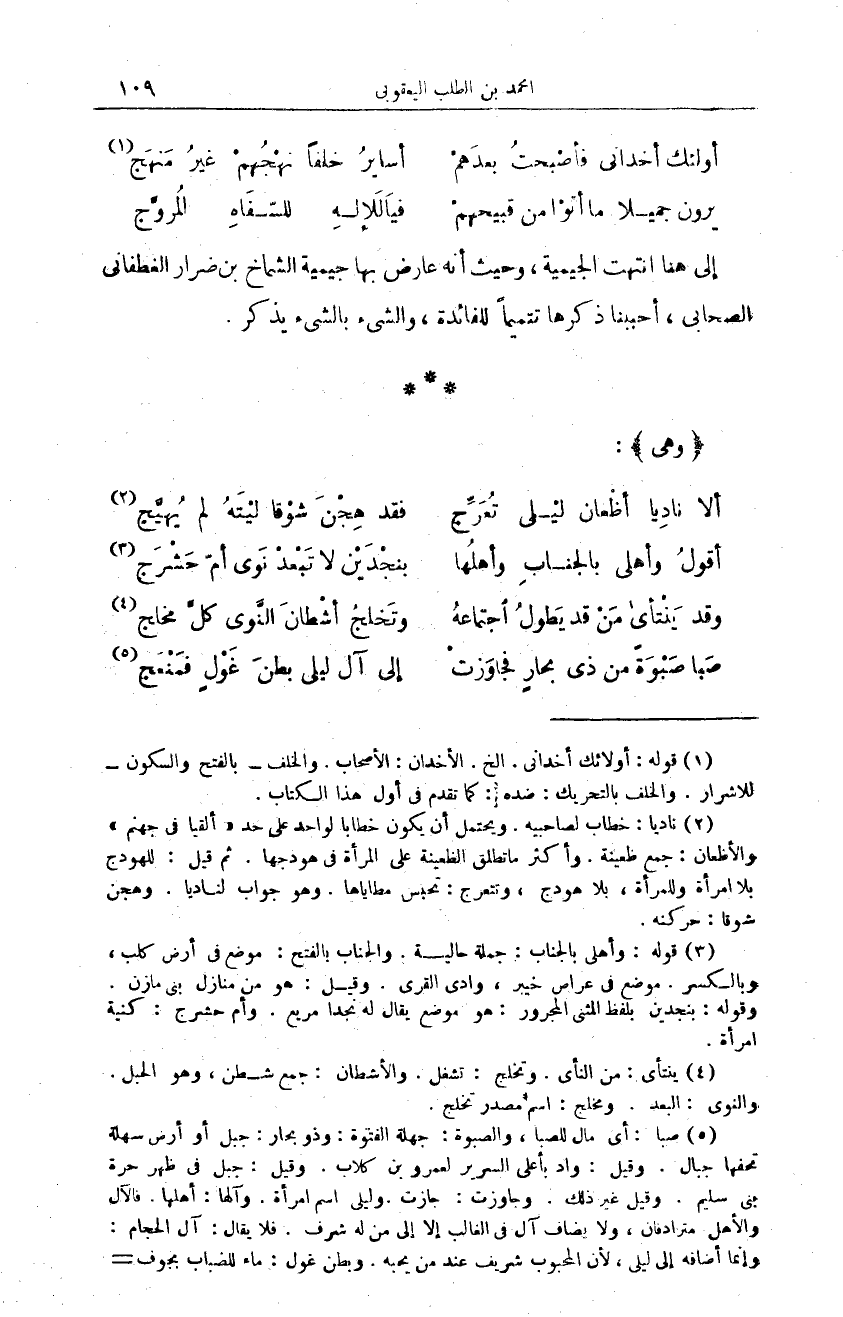 احمد بن الطلب اليعقوبى ١٠٩
أولئك أخدانى فأصْبحتُ بعدَهمْ أسايرُ خلفاً نهْجُهمْ غيرُ مَنهَج(١)
يرون جميلا ما أتوْا من قبيحهمْ فيالَلإلهِ للسَّفَاهِ المُروَّج
إلى هنا انتهت الجيمية ، وحيث أنه عارض بها جيمية الشماخ بن ضرار الغطفانى
الصحابى ، أحببنا ذكرها تتميماً للفائدة ، والشىء بالشىء يذكر .
***
﴿ وهى ﴾ :
ألا نادِيا أظْعان ليْلى تُعَرِّج فقد هِجْنَ شوْقا ليْتَهُ لم يُهيَّج(٢)
أقولُ وأهلى بالجنابِ وأهلُها بنجْدَيْن لا تَبْعَدْ نَوى أمّ حَشْرَج(٣)
وقد يَنْتأىٰ مَنْ قد يَطولُ اُجتماعهُ وتَخلجُ أشْطانَ النَّوى كلَّ مخلج(٤)
صَبا صَبْوَةً من ذى بحارٍ فجاوَزتْ إلى آل ليلى بطنَ غَوْلٍ فمَنْعَج(٥)
(١) قوله : أولائك أخدانى . الخ . الأخدان : الأصحاب . والخلف ـ بالفتح والسكون ـ
للاشرار . والخلف بالتحريك : ضده : كما تقدم فى أول هذا الكتاب .
(٢) ناديا : خطاب لصاحبيه . ويحتمل أن يكون خطابا لواحد على حد « ألقيا فى جهنم »
والأظعان : جمع ظعينة . وأكثر ماتطلق الظعينة على المرأة فى هودجها . ثم قيل : للهودج
بلا امرأة وللمرأة ، بلا هودج ، وتتعرج : تحبس مطاياها . وهو جواب لناديا . وهجن
شوقا : حركنه .
(٣) قوله : وأهلى بالجناب : جملة حالية . والجناب بالفتح : موضع فى أرض كلب ،
وبالكسر . موضع فى عراس خيبر ، وادى القرى . وقيل : هو من منازل بنى مازن .
وقوله : بنجدين بلفظ المثنى المجرور : هو موضع يقال له نجدا مريع . وأم حشرج : كنية
امرأة .
(٤) ينتأى : من النأى . وتخلج : تشغل . والأشطان : جمع شطن ، وهو الحبل .
والنوى : البعد . ومخلج : اسم مصدر تخلج .
(٥) صبا : أى مال للصبا ، والصبوة : جهلة الفتوة : وذو بحار : جبل أو أرض سهلة
تحفها جبال . وقيل : واد بأعلى السرير لعمرو بن كلاب . وقيل : جبل فى ظهر حرة
بنى سليم . وقيل غير ذلك . وجاوزت : جازت . وليلى اسم امرأة . وآلها : أهلها . فالآل
والأهل مترادفان ، ولا يضاف آل فى الغالب إلا إلى من له شرف . فلا يقال : آل الحجام :
وإنما أضافه إلى ليلى ، لأن المحبوب شريف عند من يحبه . وبطن غول : ماء للضباب بجوف =